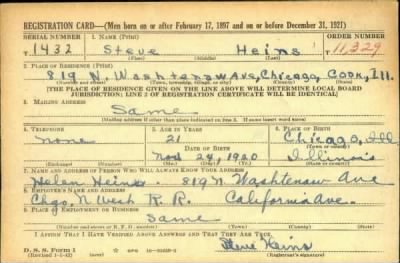 REGISTRATION CARD—(Men born on or after February 17, 1897 and on or before December 31, 1921)
SERIAL NUMBER 1. NAME (Print) ORDER NUMBER
T 1432 Steve Heins 11,329
(First) (Middle) (Last)
2. PLACE OF RESIDENCE (Print)
819 N. Washtenaw Ave, Chicago, Cook, Ill.
(Number and street) (Town, township, village, or city) (County) (State)
[THE PLACE OF RESIDENCE GIVEN ON THE LINE ABOVE WILL DETERMINE LOCAL BOARD
JURISDICTION; LINE 2 OF REGISTRATION CERTIFICATE WILL BE IDENTICAL]
3. MAILING ADDRESS
Same
[Mailing address if other than place indicated on line 2. If same insert word same]
4. TELEPHONE 5. AGE IN YEARS 6. PLACE OF BIRTH
none 21 Chicago, Ill
DATE OF BIRTH (Town or county)
Nov 24, 1920 Illinois
(Exchange) (Number) (Mo.) (Day) (Yr.) (State or country)
7. NAME AND ADDRESS OF PERSON WHO WILL ALWAYS KNOW YOUR ADDRESS
Helen Heins - 819 N. Washtenaw Ave
8. EMPLOYER'S NAME AND ADDRESS
Chgo, N West R. R. California Ave.
9. PLACE OF EMPLOYMENT OR BUSINESS
Same
(Number and street or R. F. D. number) (Town) (County) (State)
I AFFIRM THAT I HAVE VERIFIED ABOVE ANSWERS AND THAT THEY ARE TRUE.
D. S. S. Form 1 Steve Heins
(Revised 1-1-42) (over) (Registrant's signature)